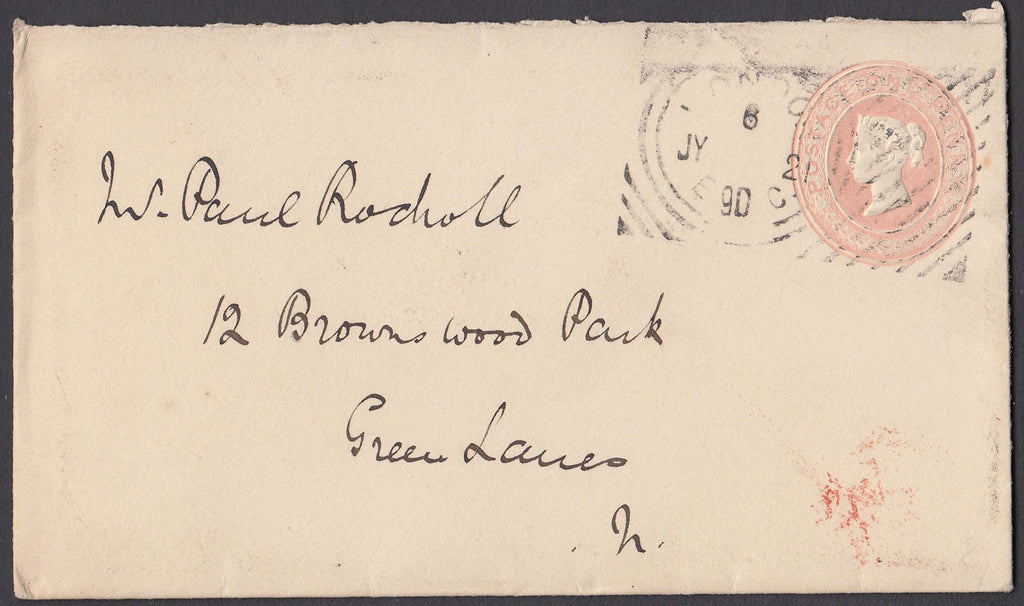 POSTAGE ONE PENNY
6
JY 2
90
Mr. Paul Rocholl
12 Brownswood Park
Green Lanes
N.